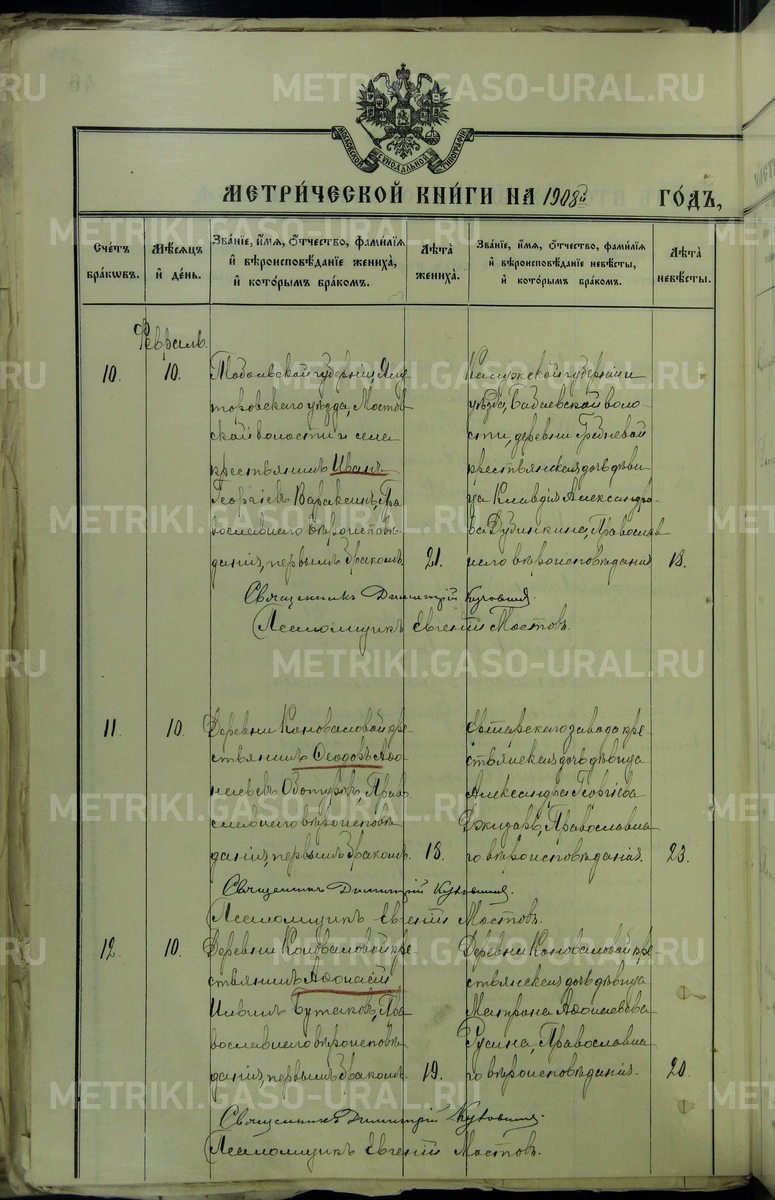 МОСКОВСКОЙ СѴНОДАЛЬНОЙ ТИПОГРАФІИ
МЕТРИ́ЧЕСКОЙ КНИ́ГИ НА 1908й ГО́ДЪ,
Сче́тъ бра́кѡвъ.
Мѣ́сяцъ и҆ де́нь.
Зва́нїе, и҆́мѧ, ѻ҆́тчество, фами́лїѧ и҆ вѣроисповѣ́данїе жениха̀, и҆ кото́рымъ бра́комъ.
Лѣ́та жениха̀.
Зва́нїе, и҆́мѧ, ѻ҆́тчество, фами́лїѧ и҆ вѣроисповѣ́данїе невѣ́сты, и҆ кото́рымъ бра́комъ.
Лѣ́та невѣ́сты.
Февраль.
10.
10.
Тобольской губерніи, Ялу
торовскаго уѣзда, Мостов
ской волости и села
крестьянинъ Иванъ
Георгіевъ Вараксинъ, Пра
вославнаго вѣроисповѣ
данія, первымъ бракомъ
21.
Калужской губерніи и
уѣзда, Бабаевской воло
сти, деревни Гридневой
крестьянская дочь дѣви
ца Клавдія Александро
ва Дубинкина, Православ
наго вѣроисповѣданія
18.
Священникъ Димитрій
Псаломщикъ Евгеній Мостовъ.
11.
10.
Деревни Коноваловой кре
стьянинъ Ѳеодоръ Аѳо
насьевъ, Право
славнаго вѣроисповѣ
данія, первымъ бракомъ.
18.
завода кре
стьянская дочь дѣвица
Александра Георгіева
Православна
го вѣроисповѣданія.
23.
Священникъ Димитрій
Псаломщикъ Евгеній Мостовъ.
12.
10.
Деревни Коноваловой кре
стьянинъ Аѳонасій
Бутаковъ, Пра
вославнаго вѣроисповѣ
данія, первымъ бракомъ.
19.
Деревни Коноваловой кре
стьянская дочь дѣвица
Матрона Аѳонасьева
Русина, Православна
го вѣроисповѣданія.
20.
Священникъ Димитрій
Псаломщикъ Евгеній Мостовъ.
METRIKI.GASO-URAL.RU